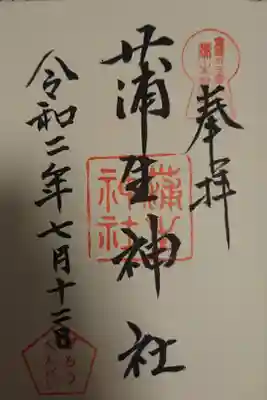 奉拝
蒲生神社
蒲生
神社
令和二年七月十二日